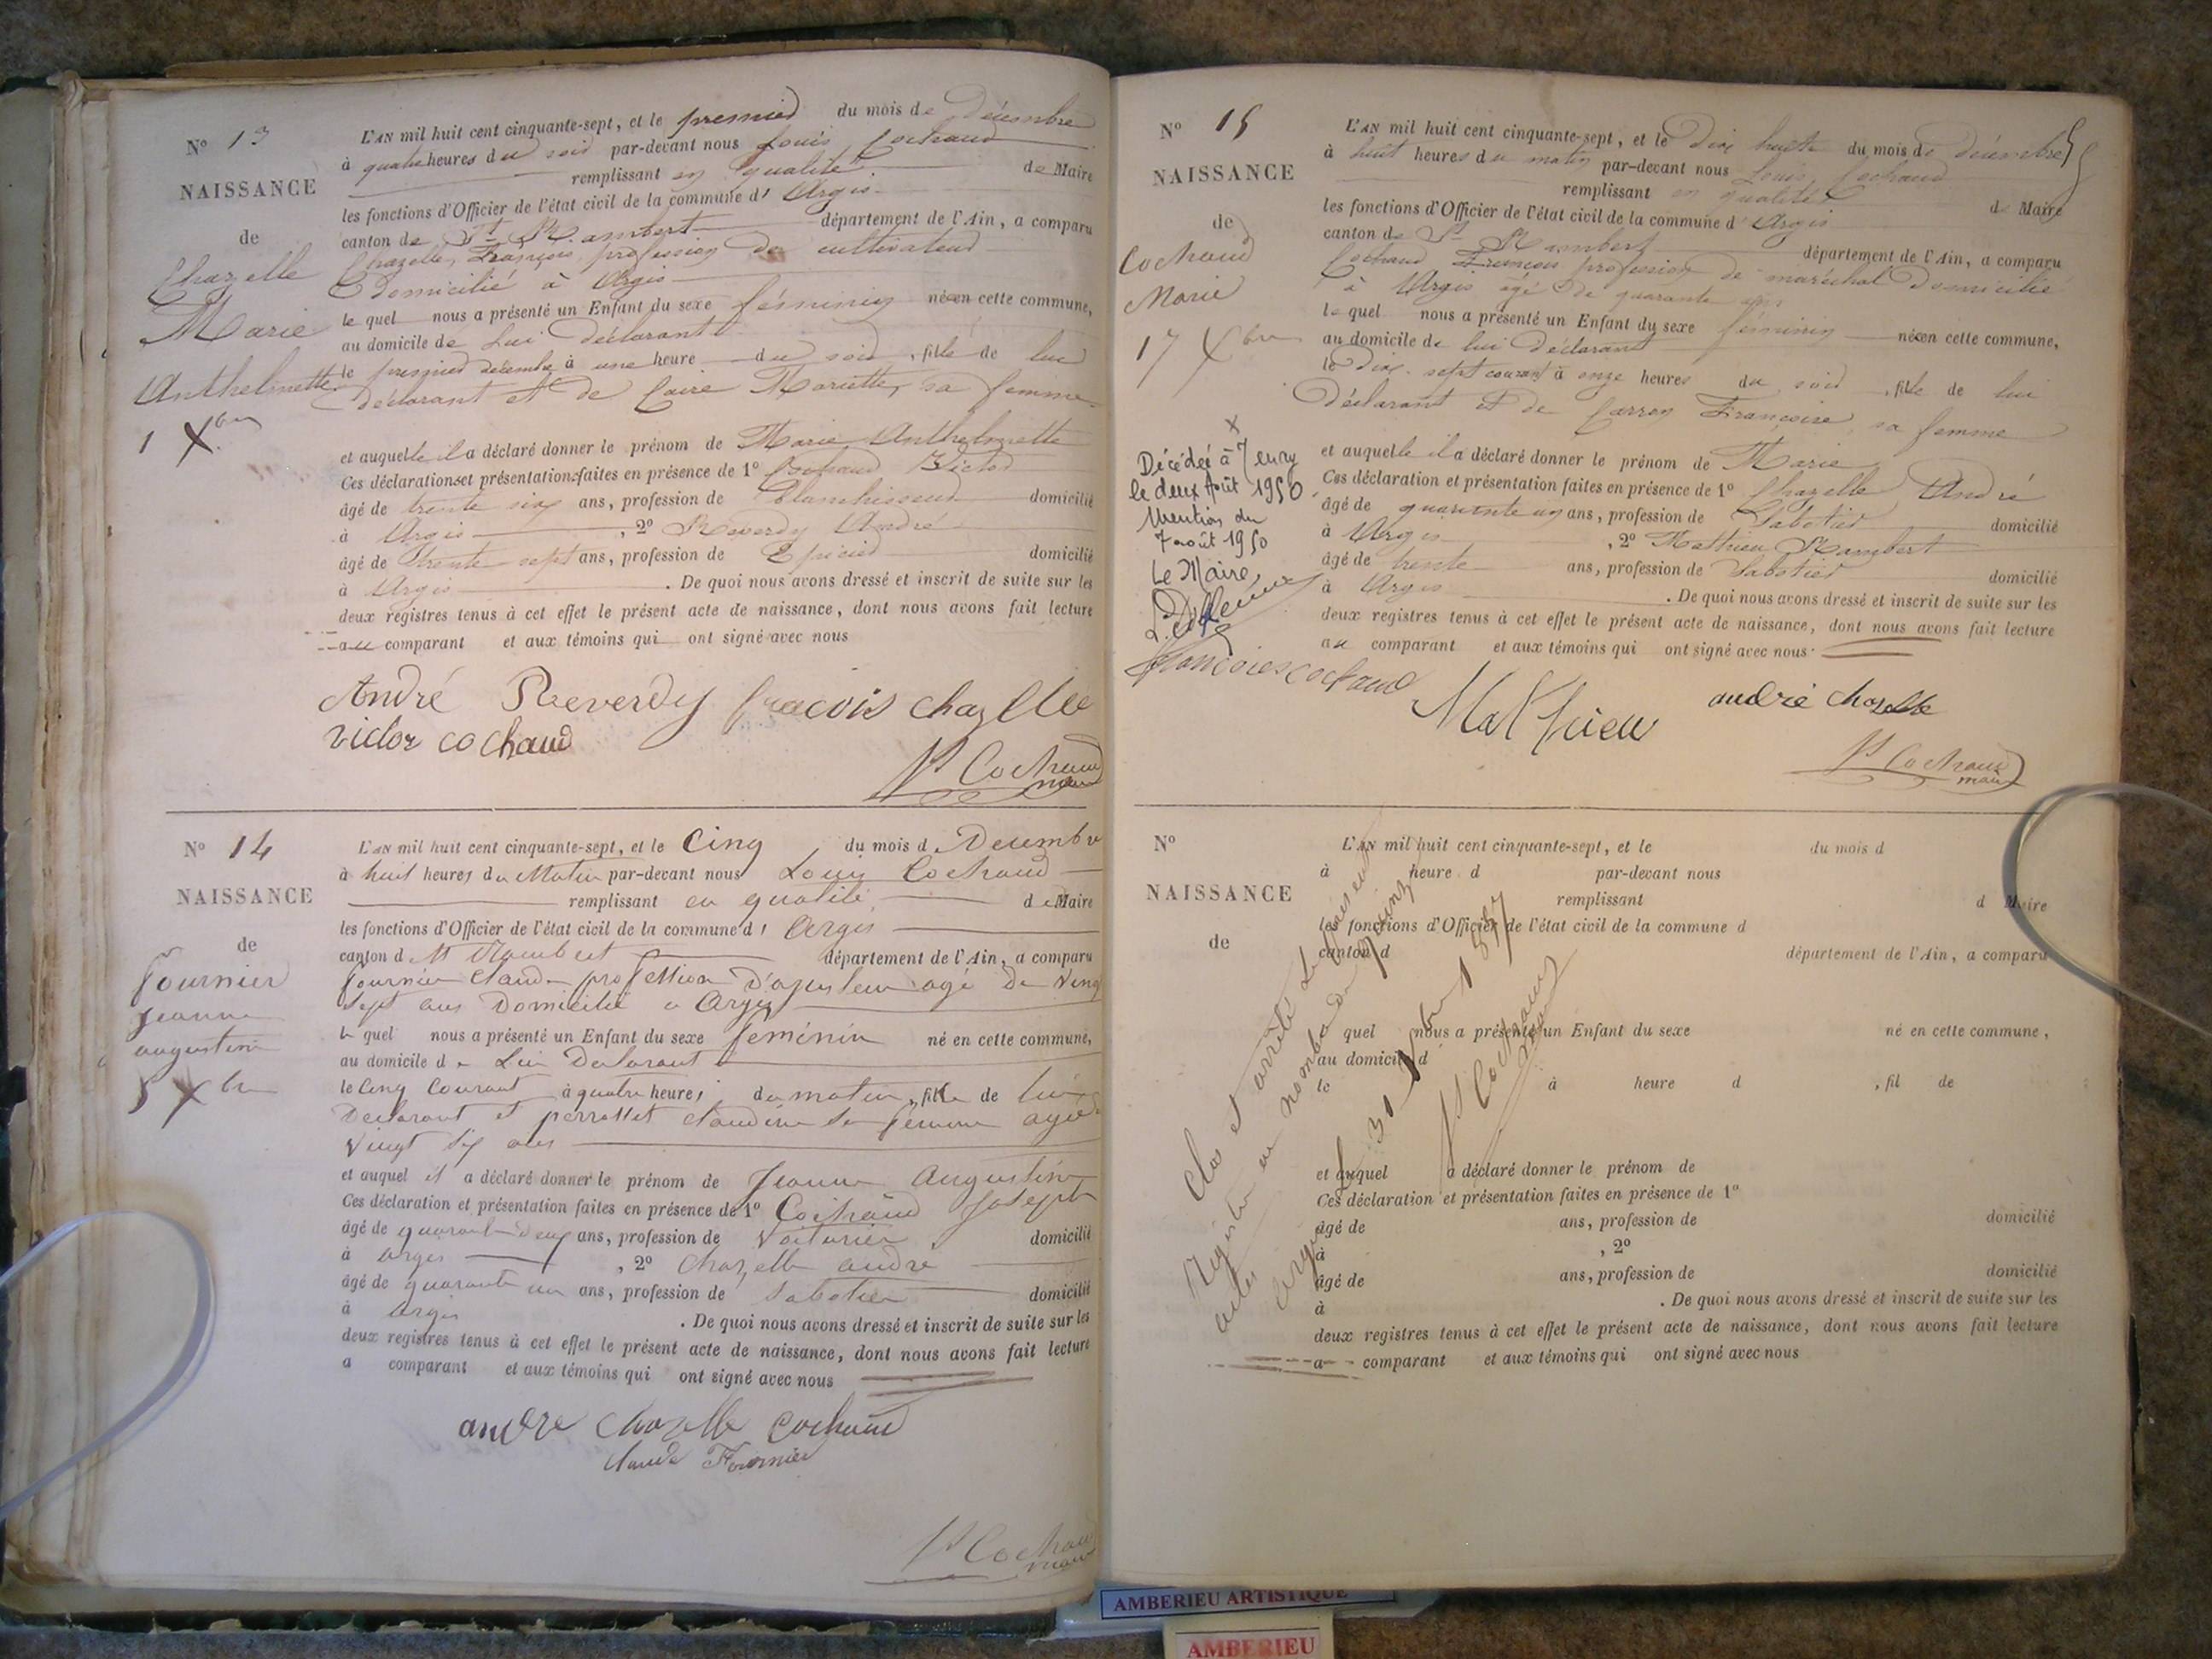 N° 13
NAISSANCE
de
Chazelle
Marie
Anthelmette
1 Xbre
L'AN mil huit cent cinquante-sept, et le premier du mois de décembre
à quatre heures du soir par-devant nous Louis Cochaud
remplissant en qualité de Maire
les fonctions d'Officier de l'état civil de la commune d' Argis
canton de St Rambert département de l'Ain, a comparu
Chazelle, François, profession de cultivateur
domicilié à Argis
le quel nous a présenté un Enfant du sexe féminin née en cette commune,
au domicile de Lui déclarant
le premier décembre à une heure du soir, fille de lui
déclarant et de Caire Mariette, sa femme
et auquelle il a déclaré donner le prénom de Marie Anthelmette
Ces déclarations et présentations faites en présence de 1° Cochaud Victor
âgé de trente six ans, profession de Blanchisseur domicilié
à Argis, 2° Reverdy André
âgé de trente sept ans, profession de Epicier domicilié
à Argis. De quoi nous avons dressé et inscrit de suite sur les
deux registres tenus à cet effet le présent acte de naissance, dont nous avons fait lecture
au comparant et aux témoins qui ont signé avec nous
André Reverdy fracois chazelle
victor cochaud
Ls Cochaud
maire
N° 14
NAISSANCE
de
fournier
jeanne
augustine
5 Xbre
L'AN mil huit cent cinquante-sept, et le Cinq du mois d Decembre
à huit heures du Matin par-devant nous Louis Cochaud
remplissant en qualité de Maire
les fonctions d'Officier de l'état civil de la commune d' Argis
canton d St Rambert département de l'Ain, a comparu
fournier Claude profession D'ajusteur agé De Vingt
Sept ans Domicilié a Argis
le quel nous a présenté un Enfant du sexe feminin né en cette commune,
au domicile de Lui Declarant
le Cinq Courant à quatre heures du matin, fille de lui
Declarant et perrosset claudine sa femme agée
Vingt Six ans
et auquel il a déclaré donner le prénom de Jeanne Augustine
Ces déclaration et présentation faites en présence de 1° Cochaud Joseph
âgé de quarante Deux ans, profession de Voiturier domicilié
à Argis, 2° Chazelle andré
âgé de quarante un ans, profession de Sabotier domicilié
à Argis. De quoi nous avons dressé et inscrit de suite sur les
deux registres tenus à cet effet le présent acte de naissance, dont nous avons fait lecture
a comparant et aux témoins qui ont signé avec nous
andre Chazelle Cochaud
claude Fournier
Ls Cochaud
maire
N° 15
NAISSANCE
de
Cochaud
Marie
17 Xbre
X
Décédée à Tenay
le deux Août 1950
Mention du
7 août 1950
Le Maire,
L'AN mil huit cent cinquante-sept, et le Dix huit du mois de décembre
à huit heures du matin par-devant nous Louis Cochaud
remplissant en qualité de Maire
les fonctions d'Officier de l'état civil de la commune d' Argis
canton de St Rambert département de l'Ain, a comparu
Cochaud François profession de maréchal domicilié
à Argis agé de quarante ans
le quel nous a présenté un Enfant du sexe féminin née en cette commune,
au domicile de lui déclarant
le dix sept courant à onze heures du soir, fille de lui
déclarant et de Carron Françoise, sa femme
et auquelle il a déclaré donner le prénom de Marie
Ces déclaration et présentation faites en présence de 1° Chazelle André
âgé de quarante un ans, profession de Sabotier domicilié
à Argis, 2° Mathieu Rambert
âgé de trente ans, profession de Sabotier domicilié
à Argis. De quoi nous avons dressé et inscrit de suite sur les
deux registres tenus à cet effet le présent acte de naissance, dont nous avons fait lecture
au comparant et aux témoins qui ont signé avec nous
françois cochaud Mathieu andré chazelle
Ls Cochaud
maire
N°
NAISSANCE
de
L'AN mil huit cent cinquante-sept, et le du mois d
à heure d par-devant nous
remplissant d Maire
les fonctions d'Officier de l'état civil de la commune d
canton d département de l'Ain, a comparu
quel nous a présenté un Enfant du sexe né en cette commune,
au domicile d
le à heure d, fil de
et auquel a déclaré donner le prénom de
Ces déclaration et présentation faites en présence de 1°
âgé de ans, profession de domicilié
à, 2°
âgé de ans, profession de domicilié
à. De quoi nous avons dressé et inscrit de suite sur les
deux registres tenus à cet effet le présent acte de naissance, dont nous avons fait lecture
a comparant et aux témoins qui ont signé avec nous
Clos et arrêté le présent
Registre au nombre de quinze
actes
Argis le 31 Xbre 1857
Ls Cochaud
AMBERIEU ARTISTIQUE
AMBERIEU